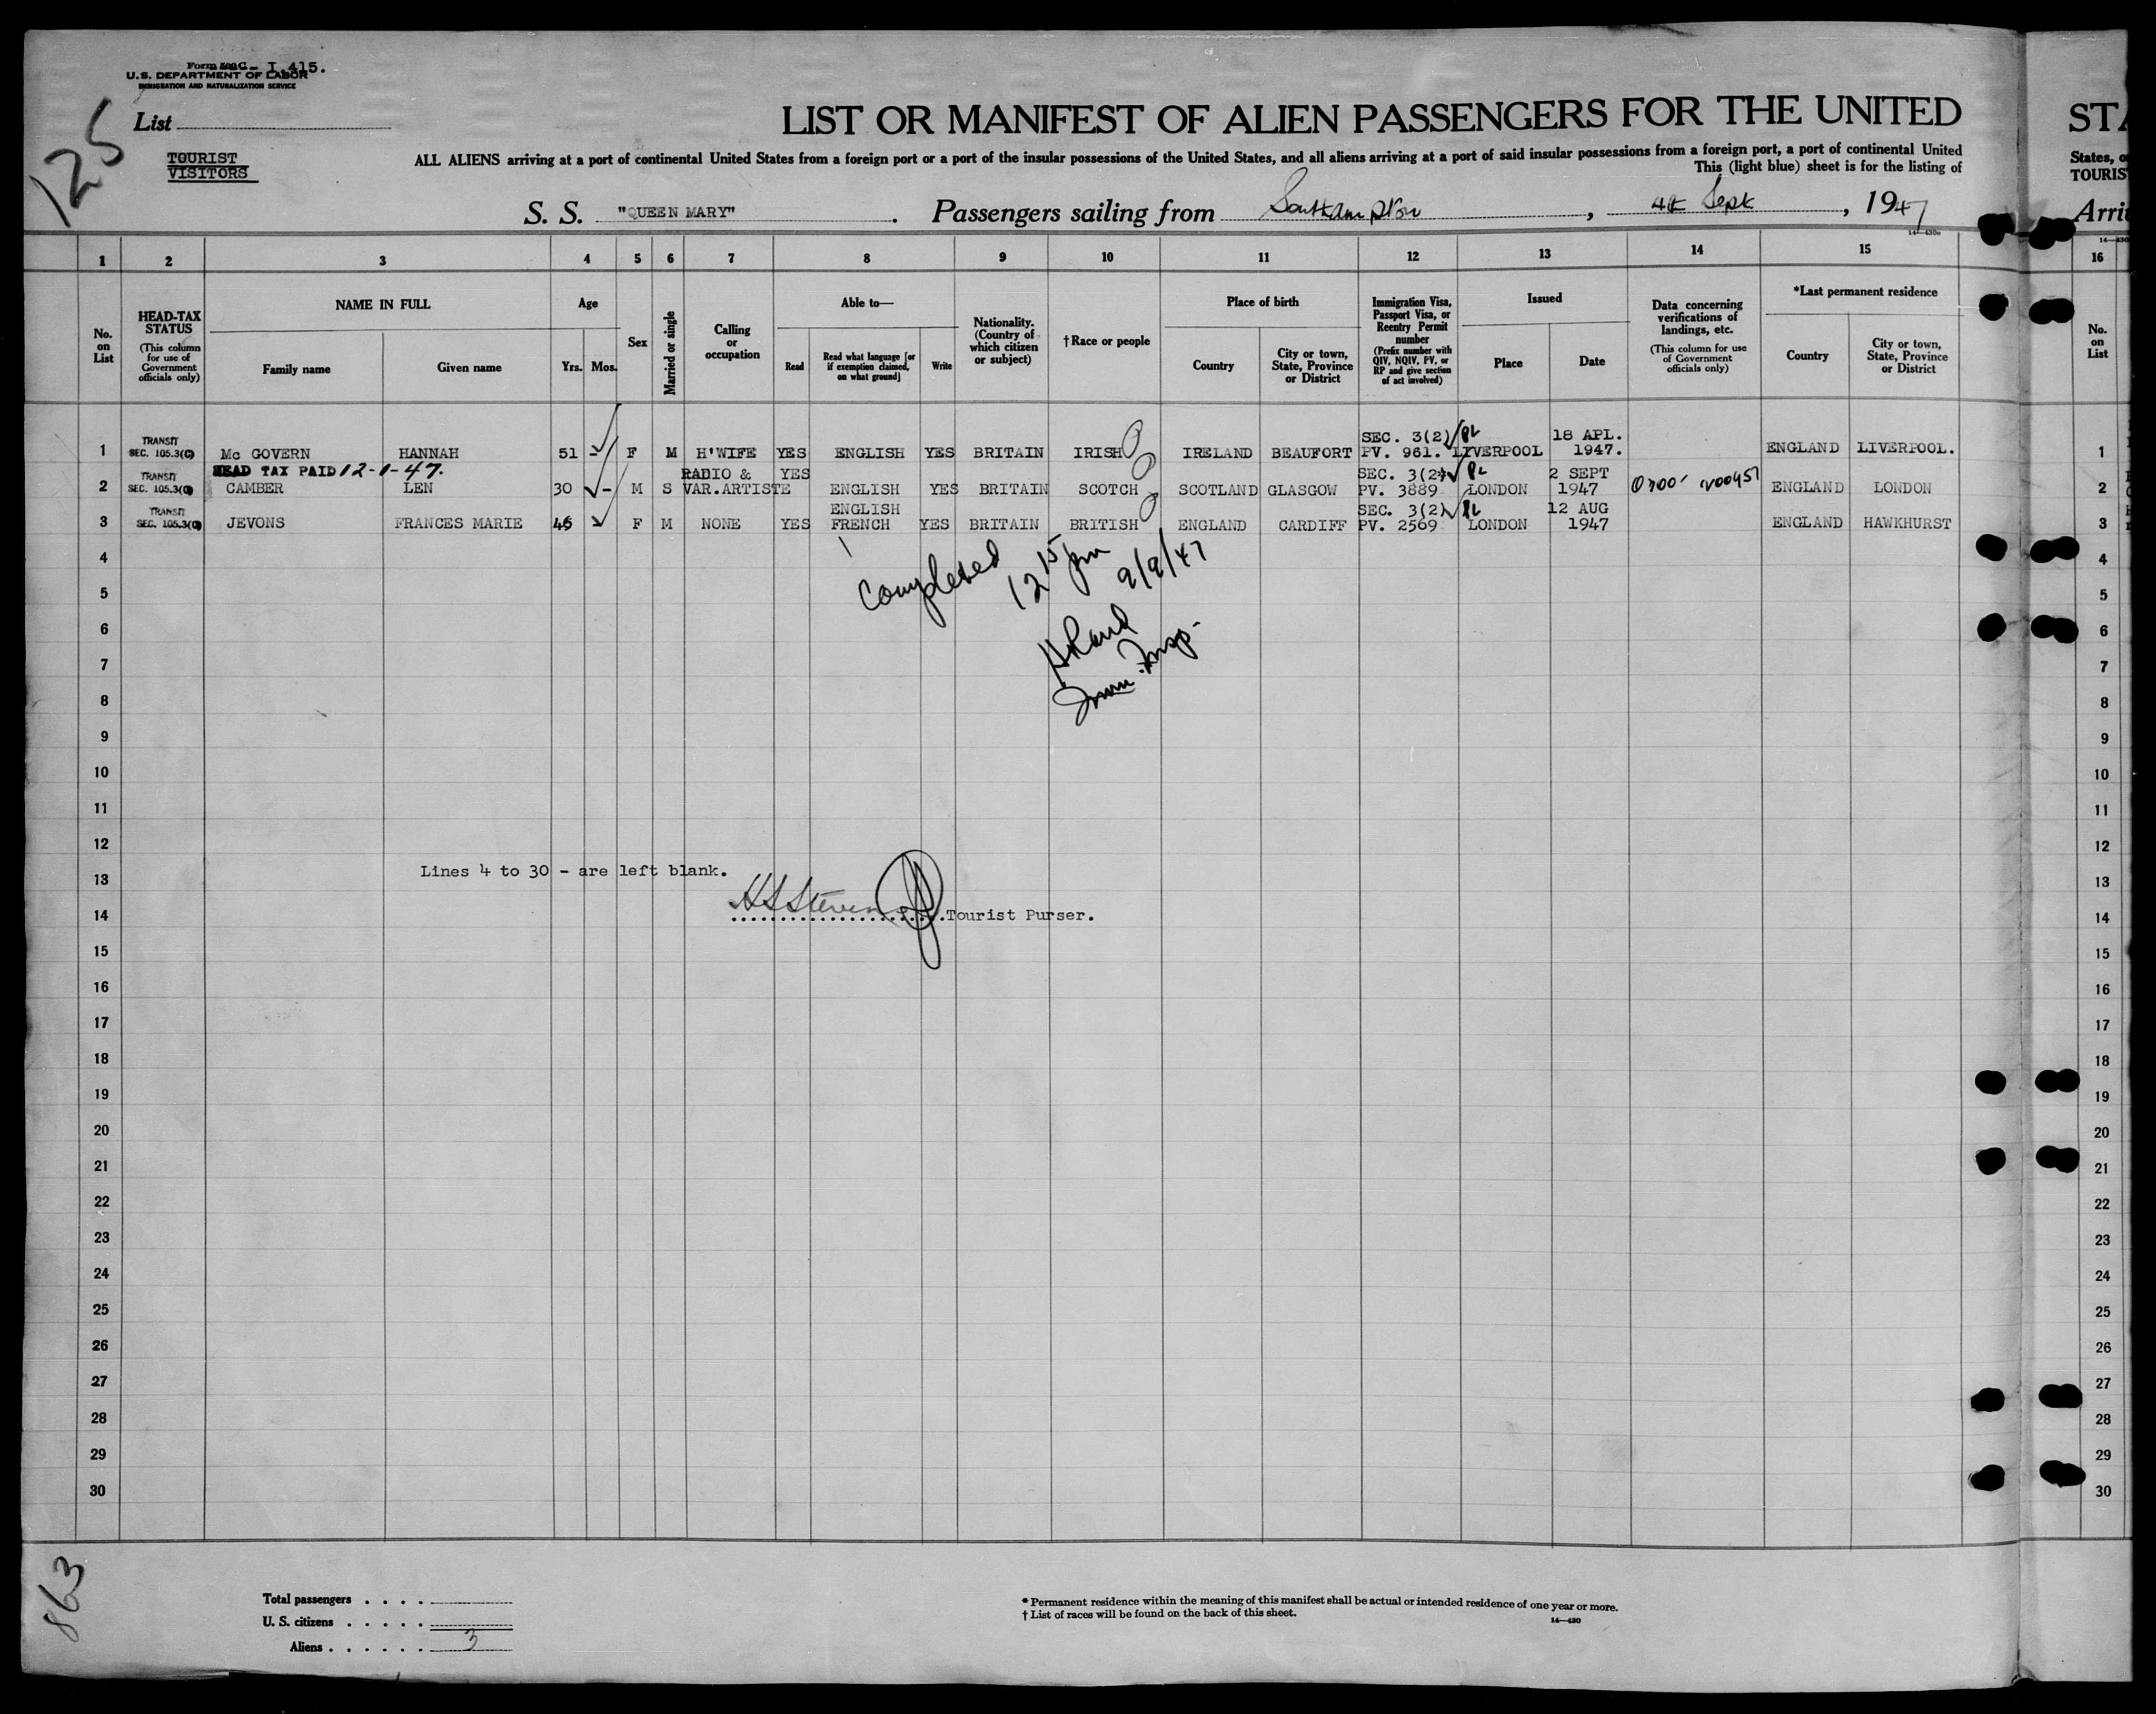 Form 500C- I.415.
U.S. DEPARTMENT OF LABOR
IMMIGRATION AND NATURALIZATION SERVICE
125
List
TOURIST
VISITORS
LIST OR MANIFEST OF ALIEN PASSENGERS FOR THE UNITED
ALL ALIENS arriving at a port of continental United States from a foreign port or a port of the insular possessions of the United States, and all aliens arriving at a port of said insular possessions from a foreign port, a port of continental United
This (light blue) sheet is for the listing of
S. S. "QUEEN MARY". Passengers sailing from Southampton, 4th Sept, 1947
STA
States, o
TOURIS
Arri
1 2 3 4 5 6 7 8 9 10 11 12 13 14 15 16
No. on List
HEAD-TAX STATUS (This column for use of Government officials only)
NAME IN FULL
Family name Given name
Age
Yrs. Mos.
Sex
Married or single
Calling or occupation
Able to—
Read Read what language [or if exemption claimed, on what ground] Write
Nationality. (Country of which citizen or subject)
†Race or people
Place of birth
Country City or town, State, Province or District
Immigration Visa, Passport Visa, or Reentry Permit number (Prefix number with QIV, NQIV, PV, or RP and give section of act involved)
Issued
Place Date
Data concerning verifications of landings, etc. (This column for use of Government officials only)
*Last permanent residence
Country City or town, State, Province or District
No. on List
TRANSIT SEC. 3(2) PL 18 APL.
1 SEC. 105.3(C) Mc GOVERN HANNAH 51 - F M H'WIFE YES ENGLISH YES BRITAIN IRISH IRELAND BEAUFORT PV. 961. LIVERPOOL 1947. ENGLAND LIVERPOOL. 1
HEAD TAX PAID 12-1-47.
TRANSIT RADIO & YES SEC. 3(2) PL 2 SEPT
2 SEC. 105.3(C) CAMBER LEN 30 - M S VAR.ARTISTE ENGLISH YES BRITAIN SCOTCH SCOTLAND GLASGOW PV. 3889 LONDON 1947 ENGLAND LONDON 2
TRANSIT ENGLISH SEC. 3(2) PL 12 AUG
3 SEC. 105.3(C) JEVONS FRANCES MARIE F M NONE YES FRENCH YES BRITAIN BRITISH ENGLAND CARDIFF PV. 2569 LONDON 1947 ENGLAND HAWKHURST 3
4 4
Completed 12 15 pm 9/9/47
5 5
6 6
7 7
Imm. Insp.
8 8
9 9
10 10
11 11
12 12
Lines 4 to 30 - are left blank.
13 13
14 Tourist Purser. 14
15 15
16 16
17 17
18 18
19 19
20 20
21 21
22 22
23 23
24 24
25 25
26 26
27 27
28 28
29 29
30 30
863
Total passengers . . . .
U. S. citizens . . . . .
Aliens . . . . . . 3
* Permanent residence within the meaning of this manifest shall be actual or intended residence of one year or more.
† List of races will be found on the back of this sheet.
14—430